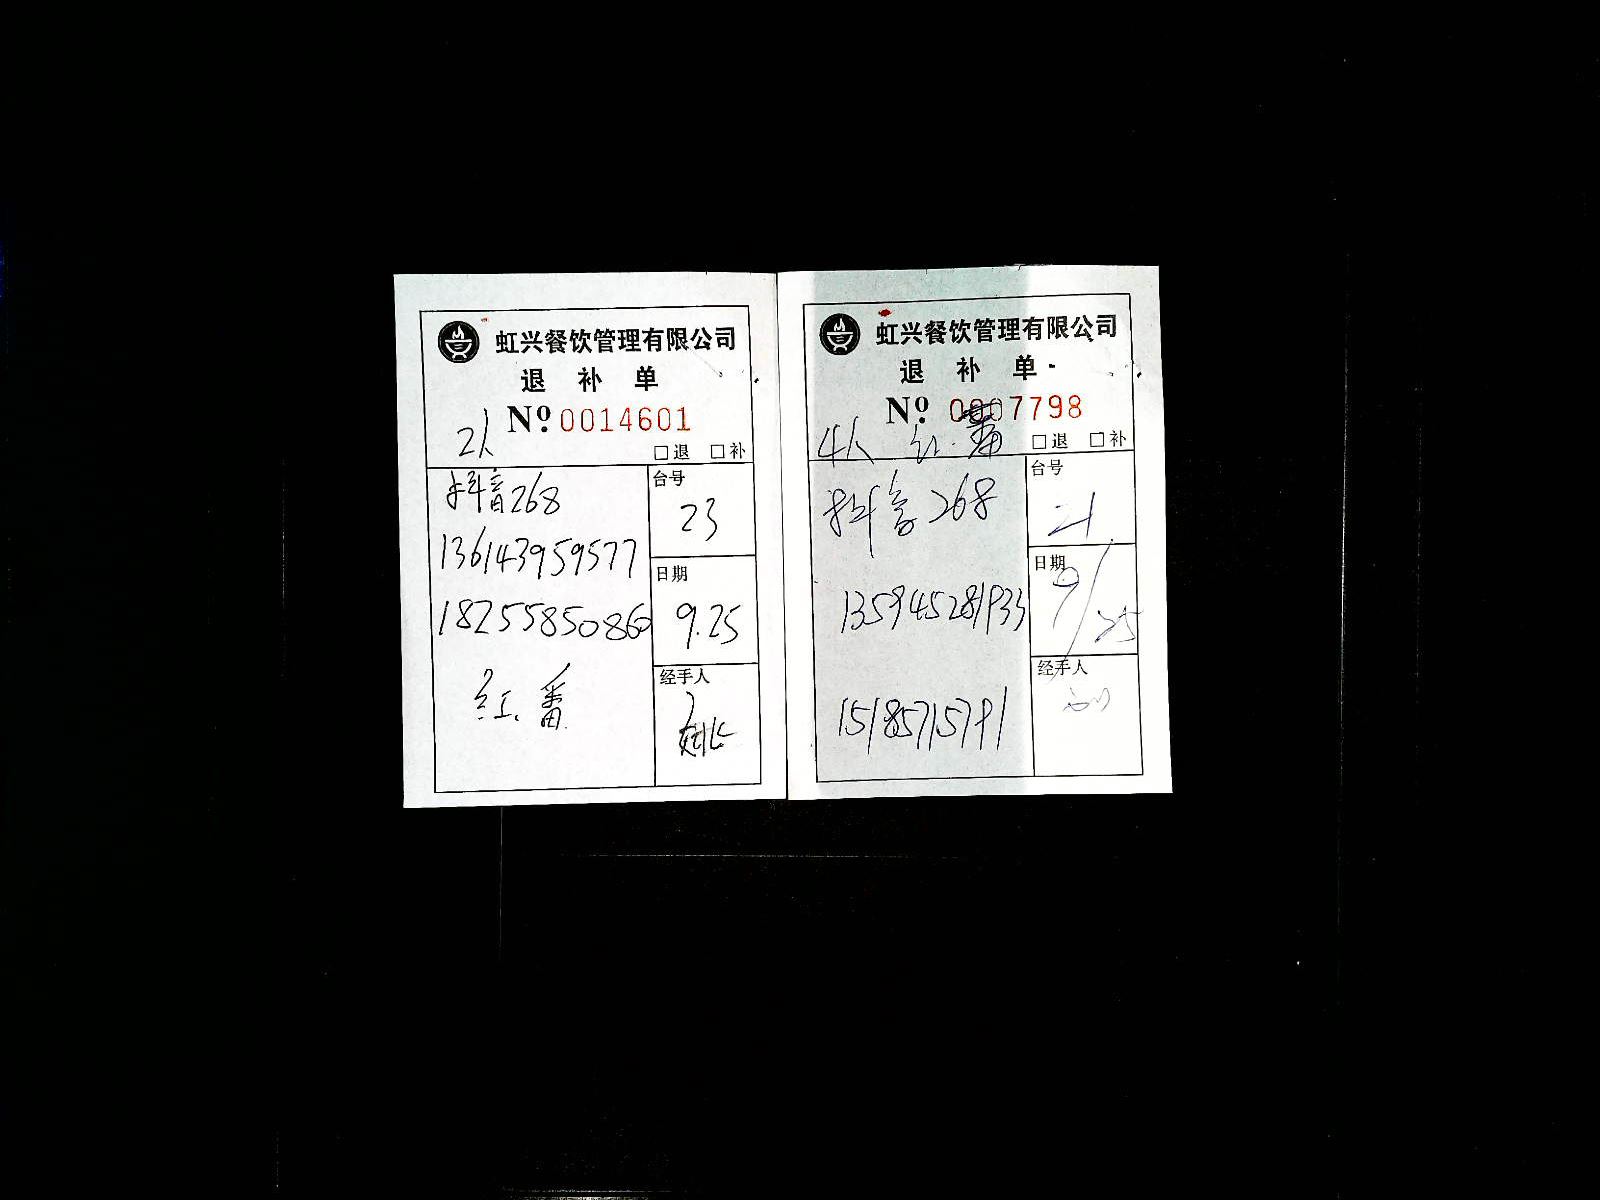 虹兴餐饮管理有限公司
退 补 单
№ 0014601
2人
□退 □补
抖音268
136143959577
18255850860
红、番
台号
23
日期
9.25
经手人
虹兴餐饮管理有限公司
退 补 单
№ 0007798
4人 红、番
□退 □补
抖音268
135945281933
15185715791
台号
21
日期
9/25
经手人